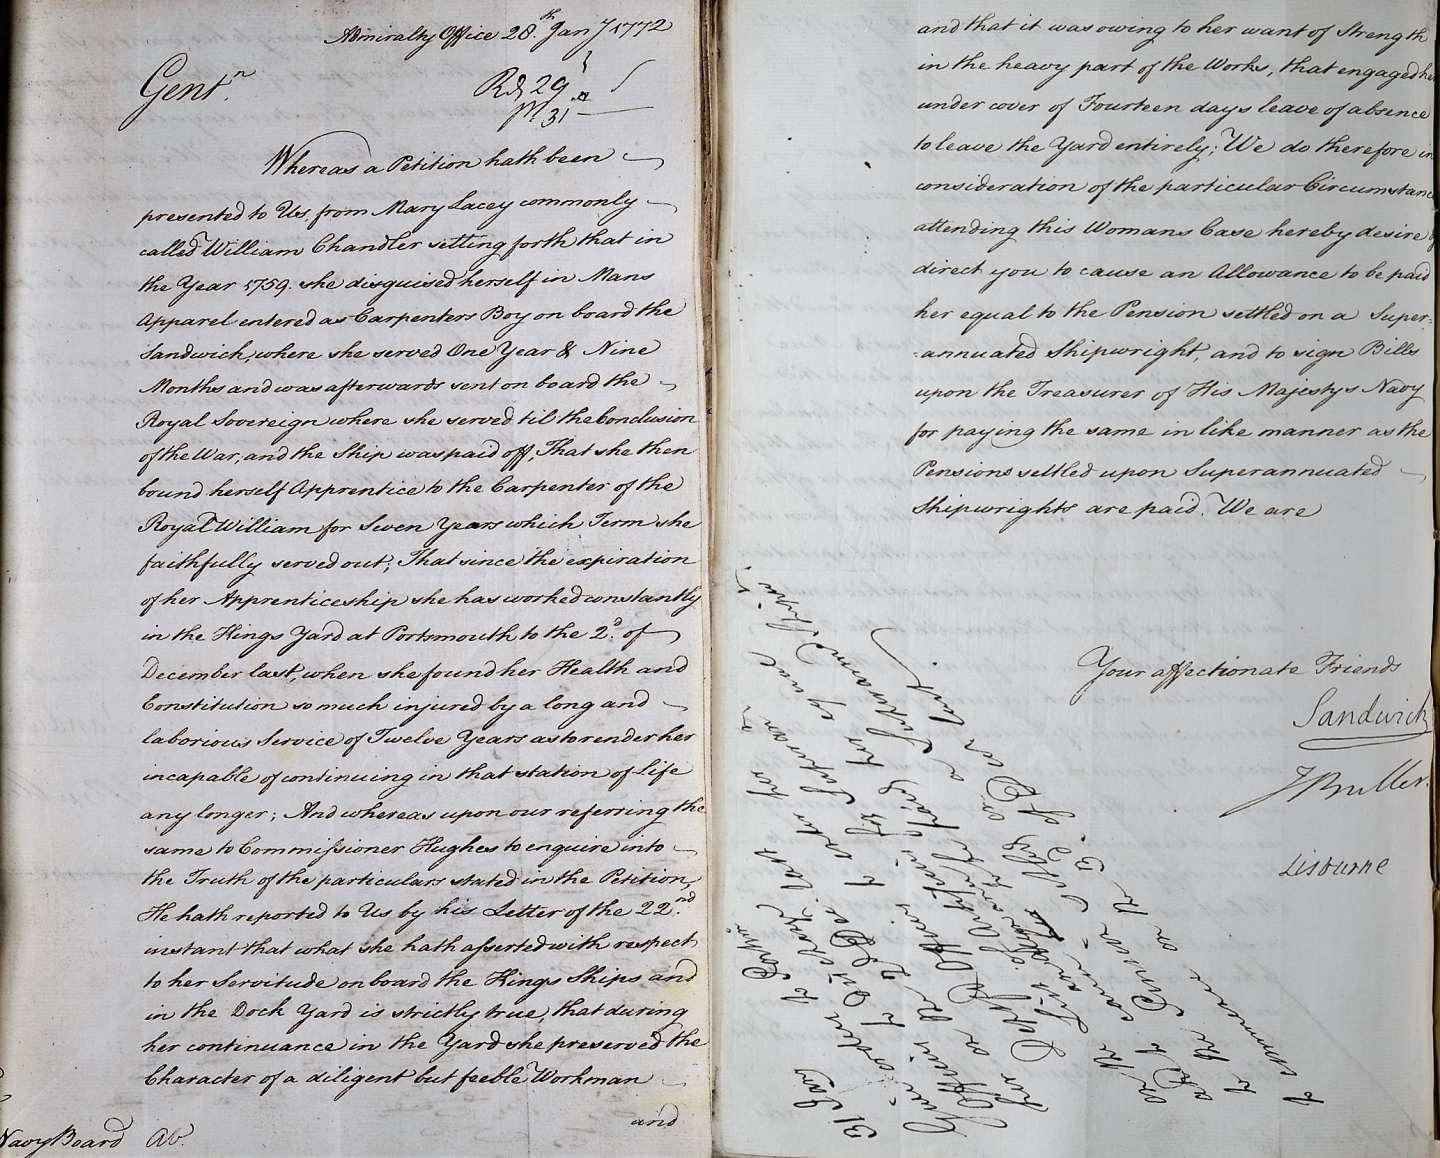 Admiralty Office 28.th Jany 1772
Gentn.
Rd. 29
31
Whereas a Petition hath been
presented to Us, from Mary Lacey commonly
called William Chandler setting forth that in
the Year 1759. she disguised herself in Mans
Apparel entered as Carpenters Boy on board the
Sandwich, where she served One Year & Nine
Months and was afterwards sent on board the
Royal Sovereign where she served til the Conclusion
of the War, and the Ship was paid off, That she then
bound herself Apprentice to the Carpenter of the
Royal William for Seven Years which Term she
faithfully served out; That since the expiration
of her Apprenticeship she has worked constantly
in the Kings Yard at Portsmouth to the 2.d of
December last, when she found her Health and
Constitution so much injured by a long and
laborious Service of Twelve Years as to render her
incapable of continuing in that station of Life
any longer; And whereas upon our referring the
same to Commissioner Hughes to enquire into
the Truth of the particulars stated in the Petition,
He hath reported to Us by his Letter of the 22.nd
instant that what she hath asserted with respect
to her Servitude on board the Kings Ships and
in the Dock Yard is strictly true, that during
her continuance in the Yard she preserved the
Character of a diligent but feeble Workman
and
Navy Board
and that it was owing to her want of Strength
in the heavy part of the Works, that engaged her
under cover of Fourteen days leave of absence
to leave the Yard entirely; We do therefore in
consideration of the particular Circumstance
attending this Womans Case hereby desire &
direct you to cause an Allowance to be paid
her equal to the Pension settled on a Super=
=annuated Shipwright, and to sign Bills
upon the Treasurer of His Majestys Navy
for paying the same in like manner as the
Pensions settled upon Superannuated
Shipwrights are paid. We are
Your affectionate Friends
Sandwich
J Buller.
Lisburne
31 Jany
Give order to
Officers to Discharge
her on the
Officers to
on the same
the Pension
to commence on the 3d. of Decr last.